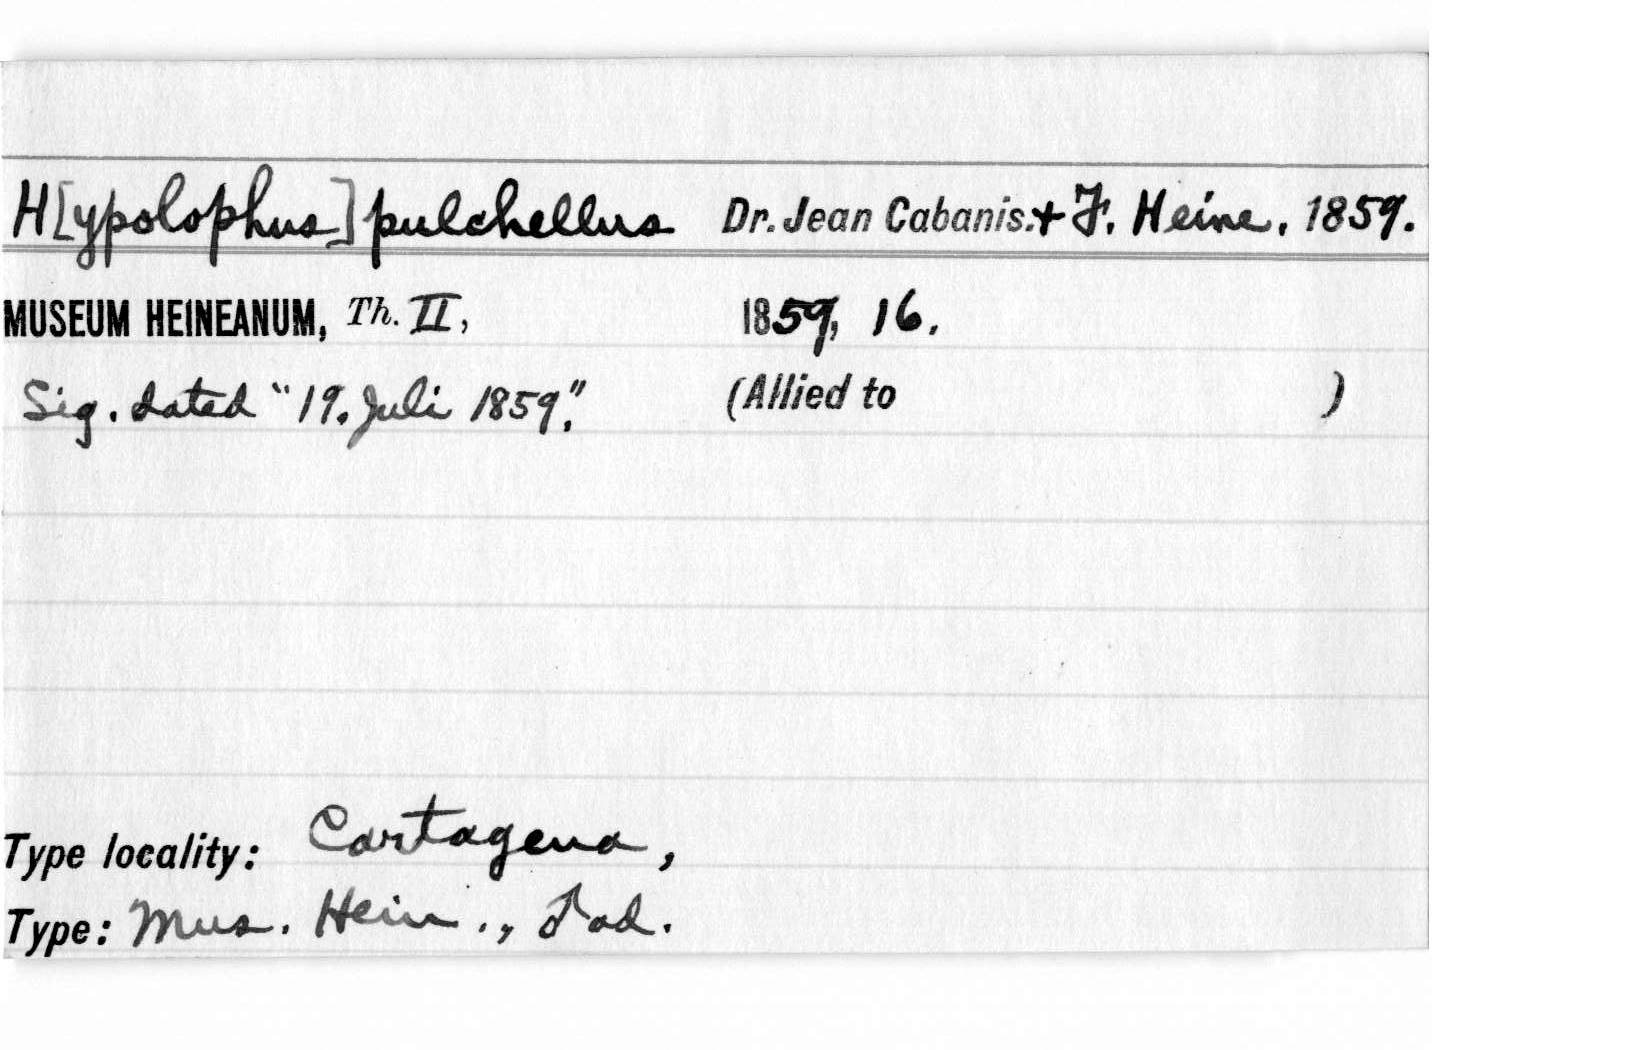 H[ypolophus] pulchellus Dr. Jean Cabanis. + F. Heine. 1859.
MUSEUM HEINEANUM, Th. II, 1859, 16.
Sig. dated "19. Juli 1859". (Allied to )
Type locality: Cartagena,
Type: Mus. Hein., ♂ ad.